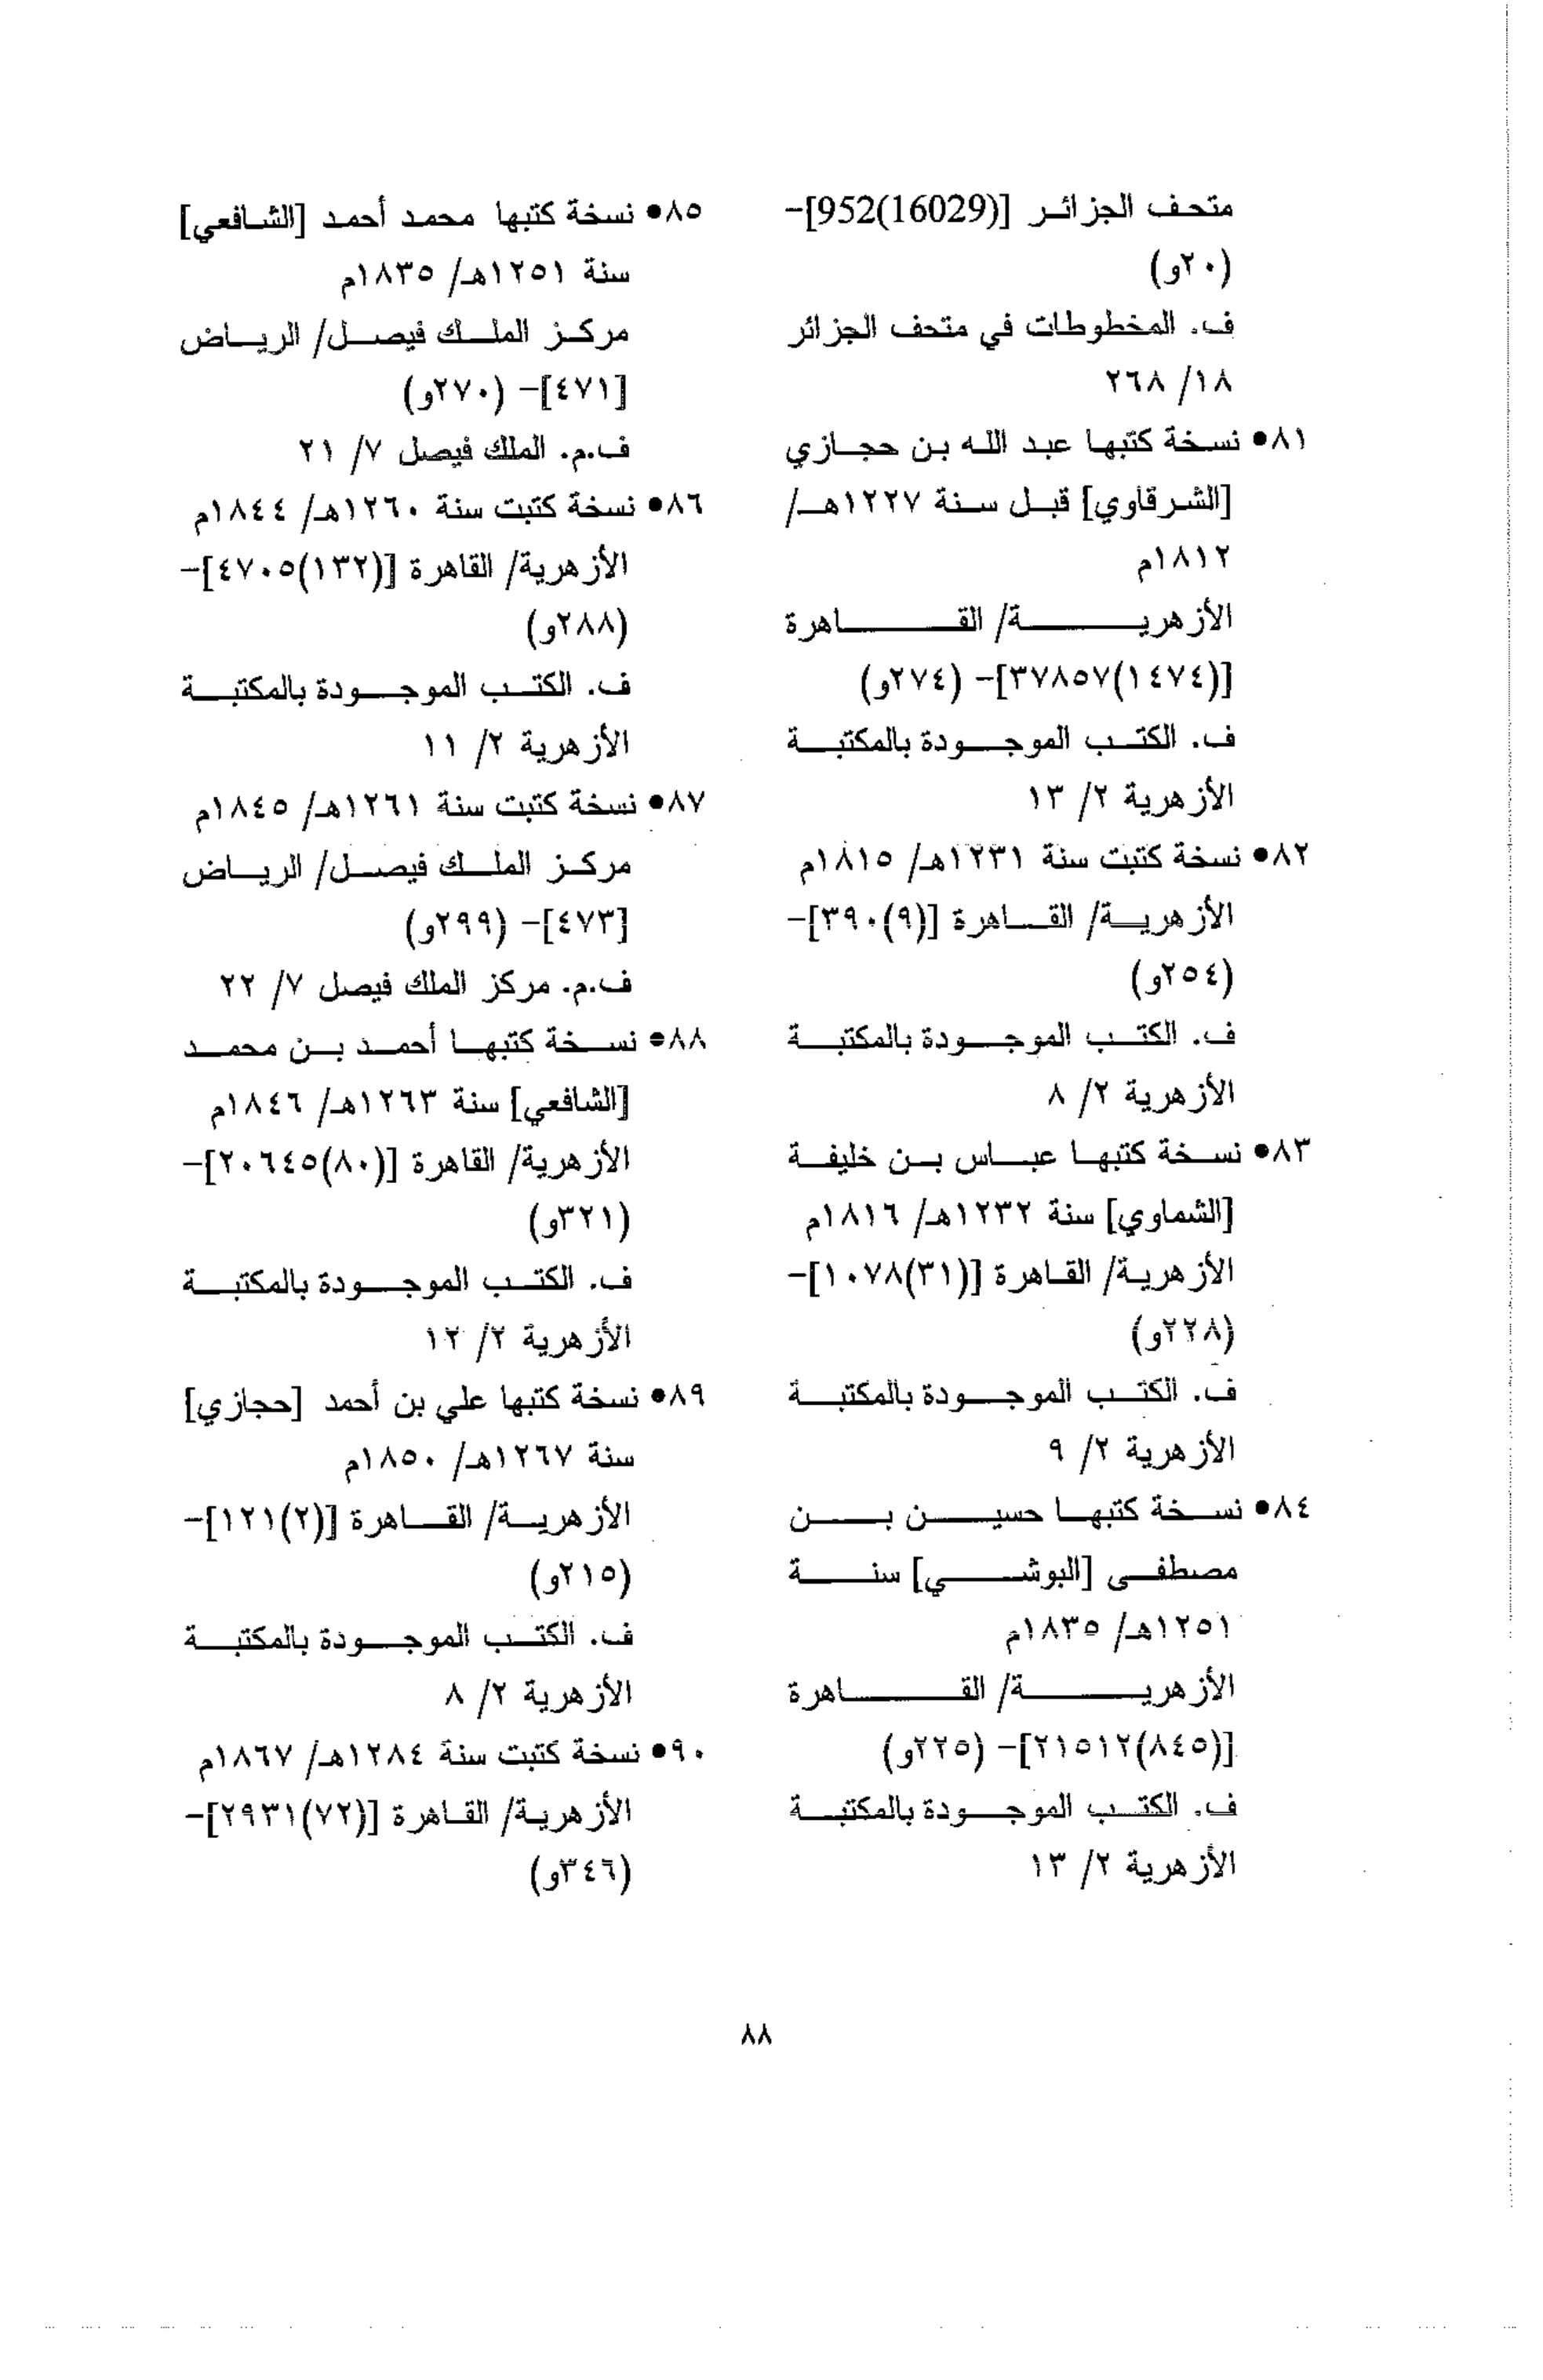 متحف الجزائر [(16029)952]-
(٢٠و)
ف. المخطوطات في متحف الجزائر
١٨/ ٢٦٨
٨١• نسخة كتبها عبد الله بن حجازي
[الشرقاوي] قبل سنة ١٢٢٧هـ/
١٨١٢م
الأزهرية/ القاهرة
[(١٤٧٤)٣٧٨٥٧]- (٢٧٤و)
ف. الكتب الموجودة بالمكتبة
الأزهرية ٢/ ١٣
٨٢• نسخة كتبت سنة ١٢٣١هـ/ ١٨١٥م
الأزهرية/ القاهرة [(٩)٣٩٠]-
(٢٥٤و)
ف. الكتب الموجودة بالمكتبة
الأزهرية ٢/ ٨
٨٣• نسخة كتبها عباس بن خليفة
[الشماوي] سنة ١٢٣٢هـ/ ١٨١٦م
الأزهرية/ القاهرة [(٣١)١٠٧٨]-
(٢٢٨و)
ف. الكتب الموجودة بالمكتبة
الأزهرية ٢/ ٩
٨٤• نسخة كتبها حسين بن
مصطفى [البوشي] سنة
١٢٥١هـ/ ١٨٣٥م
الأزهرية/ القاهرة
[(٨٤٥)٢١٥١٢]- (٢٢٥و)
ف. الكتب الموجودة بالمكتبة
الأزهرية ٢/ ١٣
٨٥• نسخة كتبها محمد أحمد [الشافعي]
سنة ١٢٥١هـ/ ١٨٣٥م
مركز الملك فيصل/ الرياض
[٤٧١]- (٢٧٠و)
ف.م. الملك فيصل ٧/ ٢١
٨٦• نسخة كتبت سنة ١٢٦٠هـ/ ١٨٤٤م
الأزهرية/ القاهرة [(١٣٢)٤٧٠٥]-
(٢٨٨و)
ف. الكتب الموجودة بالمكتبة
الأزهرية ٢/ ١١
٨٧• نسخة كتبت سنة ١٢٦١هـ/ ١٨٤٥م
مركز الملك فيصل/ الرياض
[٤٧٣]- (٢٩٩و)
ف.م. مركز الملك فيصل ٧/ ٢٢
٨٨• نسخة كتبها أحمد بن محمد
[الشافعي] سنة ١٢٦٣هـ/ ١٨٤٦م
الأزهرية/ القاهرة [(٨٠)٢٠٦٤٥]-
(٣٢١و)
ف. الكتب الموجودة بالمكتبة
الأزهرية ٢/ ١٢
٨٩• نسخة كتبها علي بن أحمد [حجازي]
سنة ١٢٦٧هـ/ ١٨٥٠م
الأزهرية/ القاهرة [(٢)١٢١]-
(٢١٥و)
ف. الكتب الموجودة بالمكتبة
الأزهرية ٢/ ٨
٩٠• نسخة كتبت سنة ١٢٨٤هـ/ ١٨٦٧م
الأزهرية/ القاهرة [(٧٢)٢٩٣١]-
(٣٤٦و)
٨٨